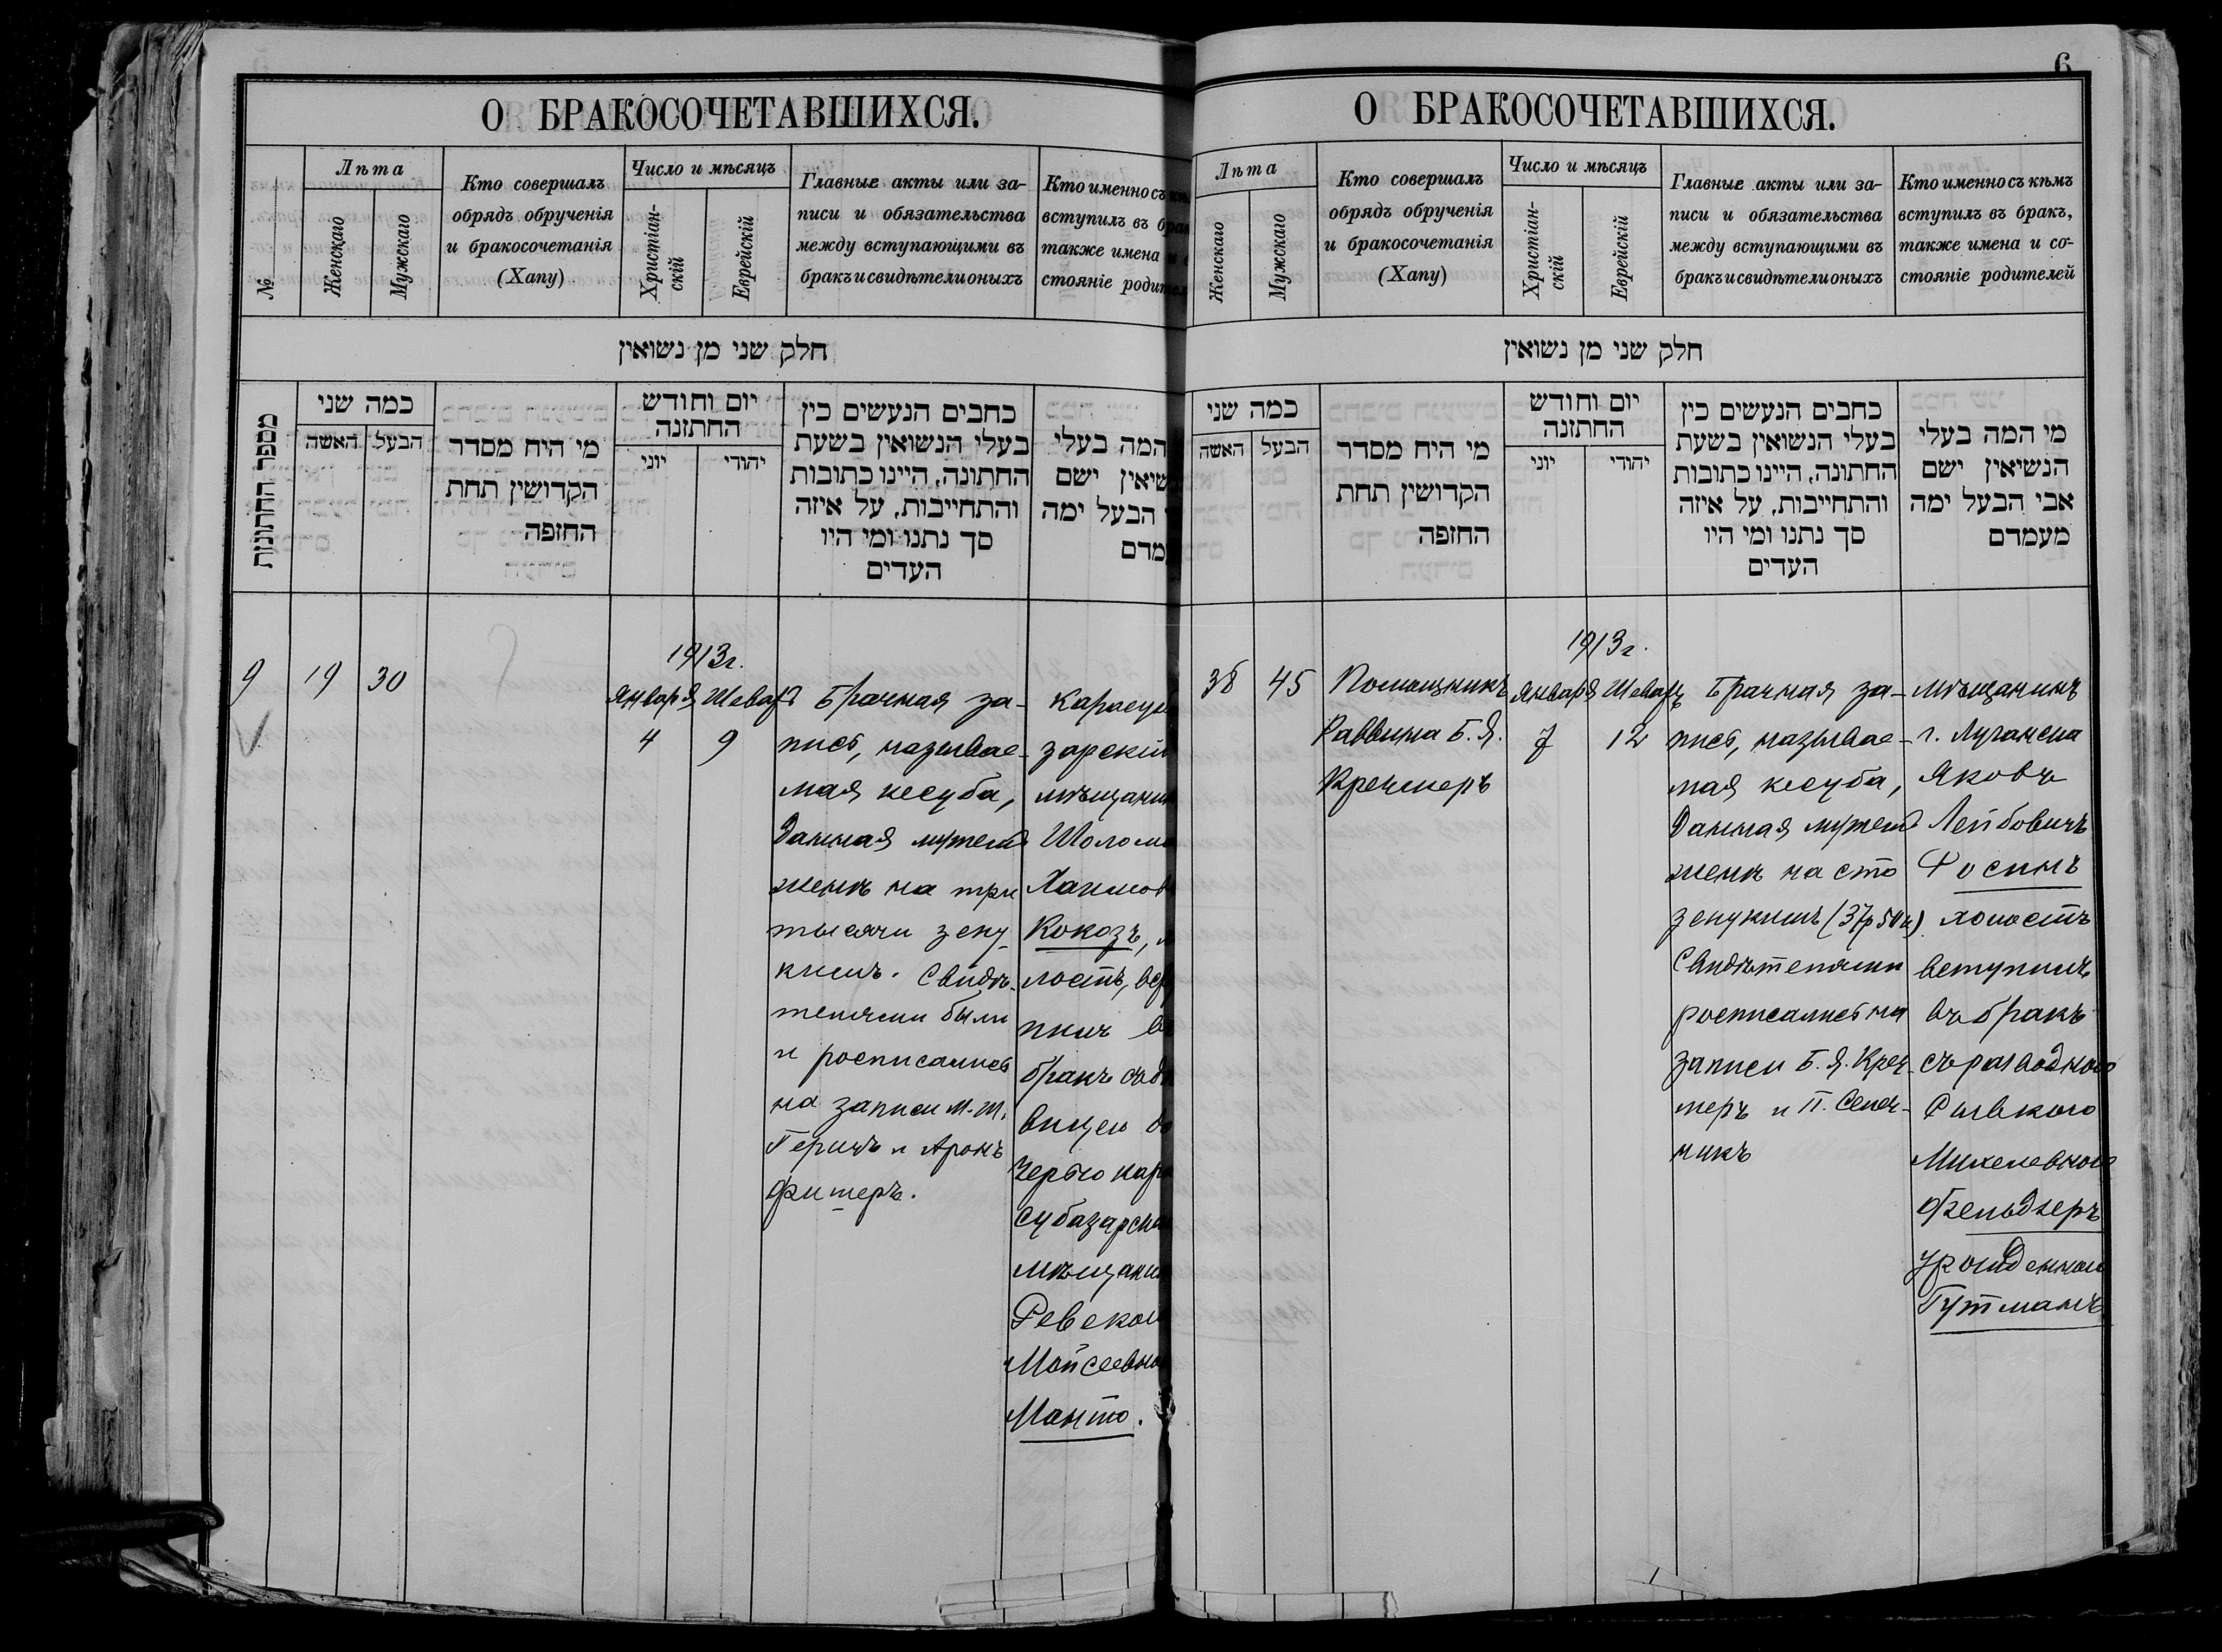 6
О БРАКОСОЧЕТАВШИХСЯ.
№
Лѣта
Женскаго
Мужскаго
Кто совершалъ
обрядъ обрученія
и бракосочетанія
(Хапу)
Число и мѣсяцъ
Христіан-
скій
Еврейскій
Главные акты или за-
писи и обязательства
между вступающими въ
бракъ и свидѣтели оныхъ
Кто именно съ
вступилъ въ
также имена
стояніе
חלק שני מן נשואין
מספר החתונות
כמה שני
האשה
הבעל
מי היח מסדר
הקדושין תחת
החופה
יום וחודש
החתזנה
יוני
יהודי
כחבים הנעשים כין
בעלי הנשואין בשעת
החתונה, היינו כתובות
והתחייבות, על איזה
סך נתנו ומי היו
העדים
המה בעלי
שיאין ישם
הבעל ימה
מדם
9
19
30
1913г.
Января
4
Шеватъ
9
Брачная за-
пись, называе-
мая кесуба,
данная мужемъ
женѣ на три
тысячи зеку-
кимъ. Свидѣ-
телями были
и росписались
на записи М. Ш.
Герцъ и Аронъ
Фишеръ.
Карасу
зарскій
мѣщани
Шолома
Хаимов
Кокозъ,
лостъ, вс
пилъ в
бракъ съ дѣ
вицею до
черью кара
субазарска
мѣщани
Ревекою
Мойсеевно
Манто.
О БРАКОСОЧЕТАВШИХСЯ.
Лѣта
Женскаго
Мужскаго
Кто совершалъ
обрядъ обрученія
и бракосочетанія
(Хапу)
Число и мѣсяцъ
Христіан-
скій
Еврейскій
Главные акты или за-
писи и обязательства
между вступающими въ
бракъ и свидѣтели оныхъ
Кто именно съ кѣмъ
вступилъ въ бракъ,
также имена и со-
стояніе родителей
חלק שני מן נשואין
כמה שני
האשה
הבעל
מי היח מסדר
הקדושין תחת
החופה
יום וחודש
החתזנה
יוני
יהודי
כחבים הנעשים כין
בעלי הנשואין בשעת
החתונה, היינו כתובות
והתחייבות, על איזה
סך נתנו ומי היו
העדים
מי המה בעלי
הנשיאין ישם
אבי הבעל ימה
מעמדם
38
45
Помощникъ
Раввина Б. Я.
Кречмеръ
1913г.
Января
7
Шеватъ
12
Брачная за-
пись, называе-
мая кесуба,
данная мужемъ
женѣ на сто
зекукимъ (37р 50к)
Свидѣтелями
росписались на
записи Б. Я. Креч-
меръ и П.
никъ
мѣщанинъ
г. Луганска
Яковъ
Лейбовичъ
Фосинъ
холостъ
вступилъ
въ бракъ
съ разводною
Ривкою
Михелевною
Фельдзеръ
урожденною
Гутманъ